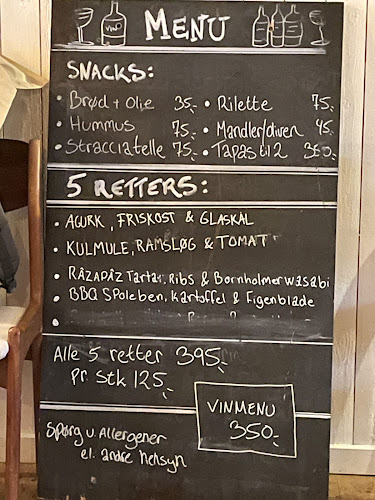 MENU
VINO
SNACKS:
• Brød + Olie 35,- • Rilette 75,-
• Hummus 75,- • Mandler/oliven 45,-
• Stracciatelle 75,- • Tapas til 2 350,-
5 RETTERS:
• AGURK, FRISKOST & GLASKÅL
• KULMULE, RAMSLØG & TOMAT
• RÅZAPÅZ Tartar, Ribs & Bornholmerwasabi
• BBQ Spoleben, Kartoffel & Figenblade
•
Alle 5 retter 395,-
Pr Stk 125,-
VINMENU
350,-
Spørg v. Allergener
el. andre hensyn